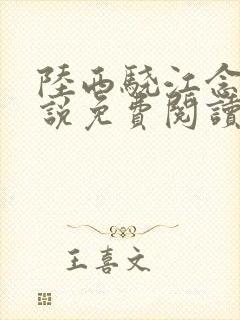 陸西驍江念
說免費閱讀
王喜文